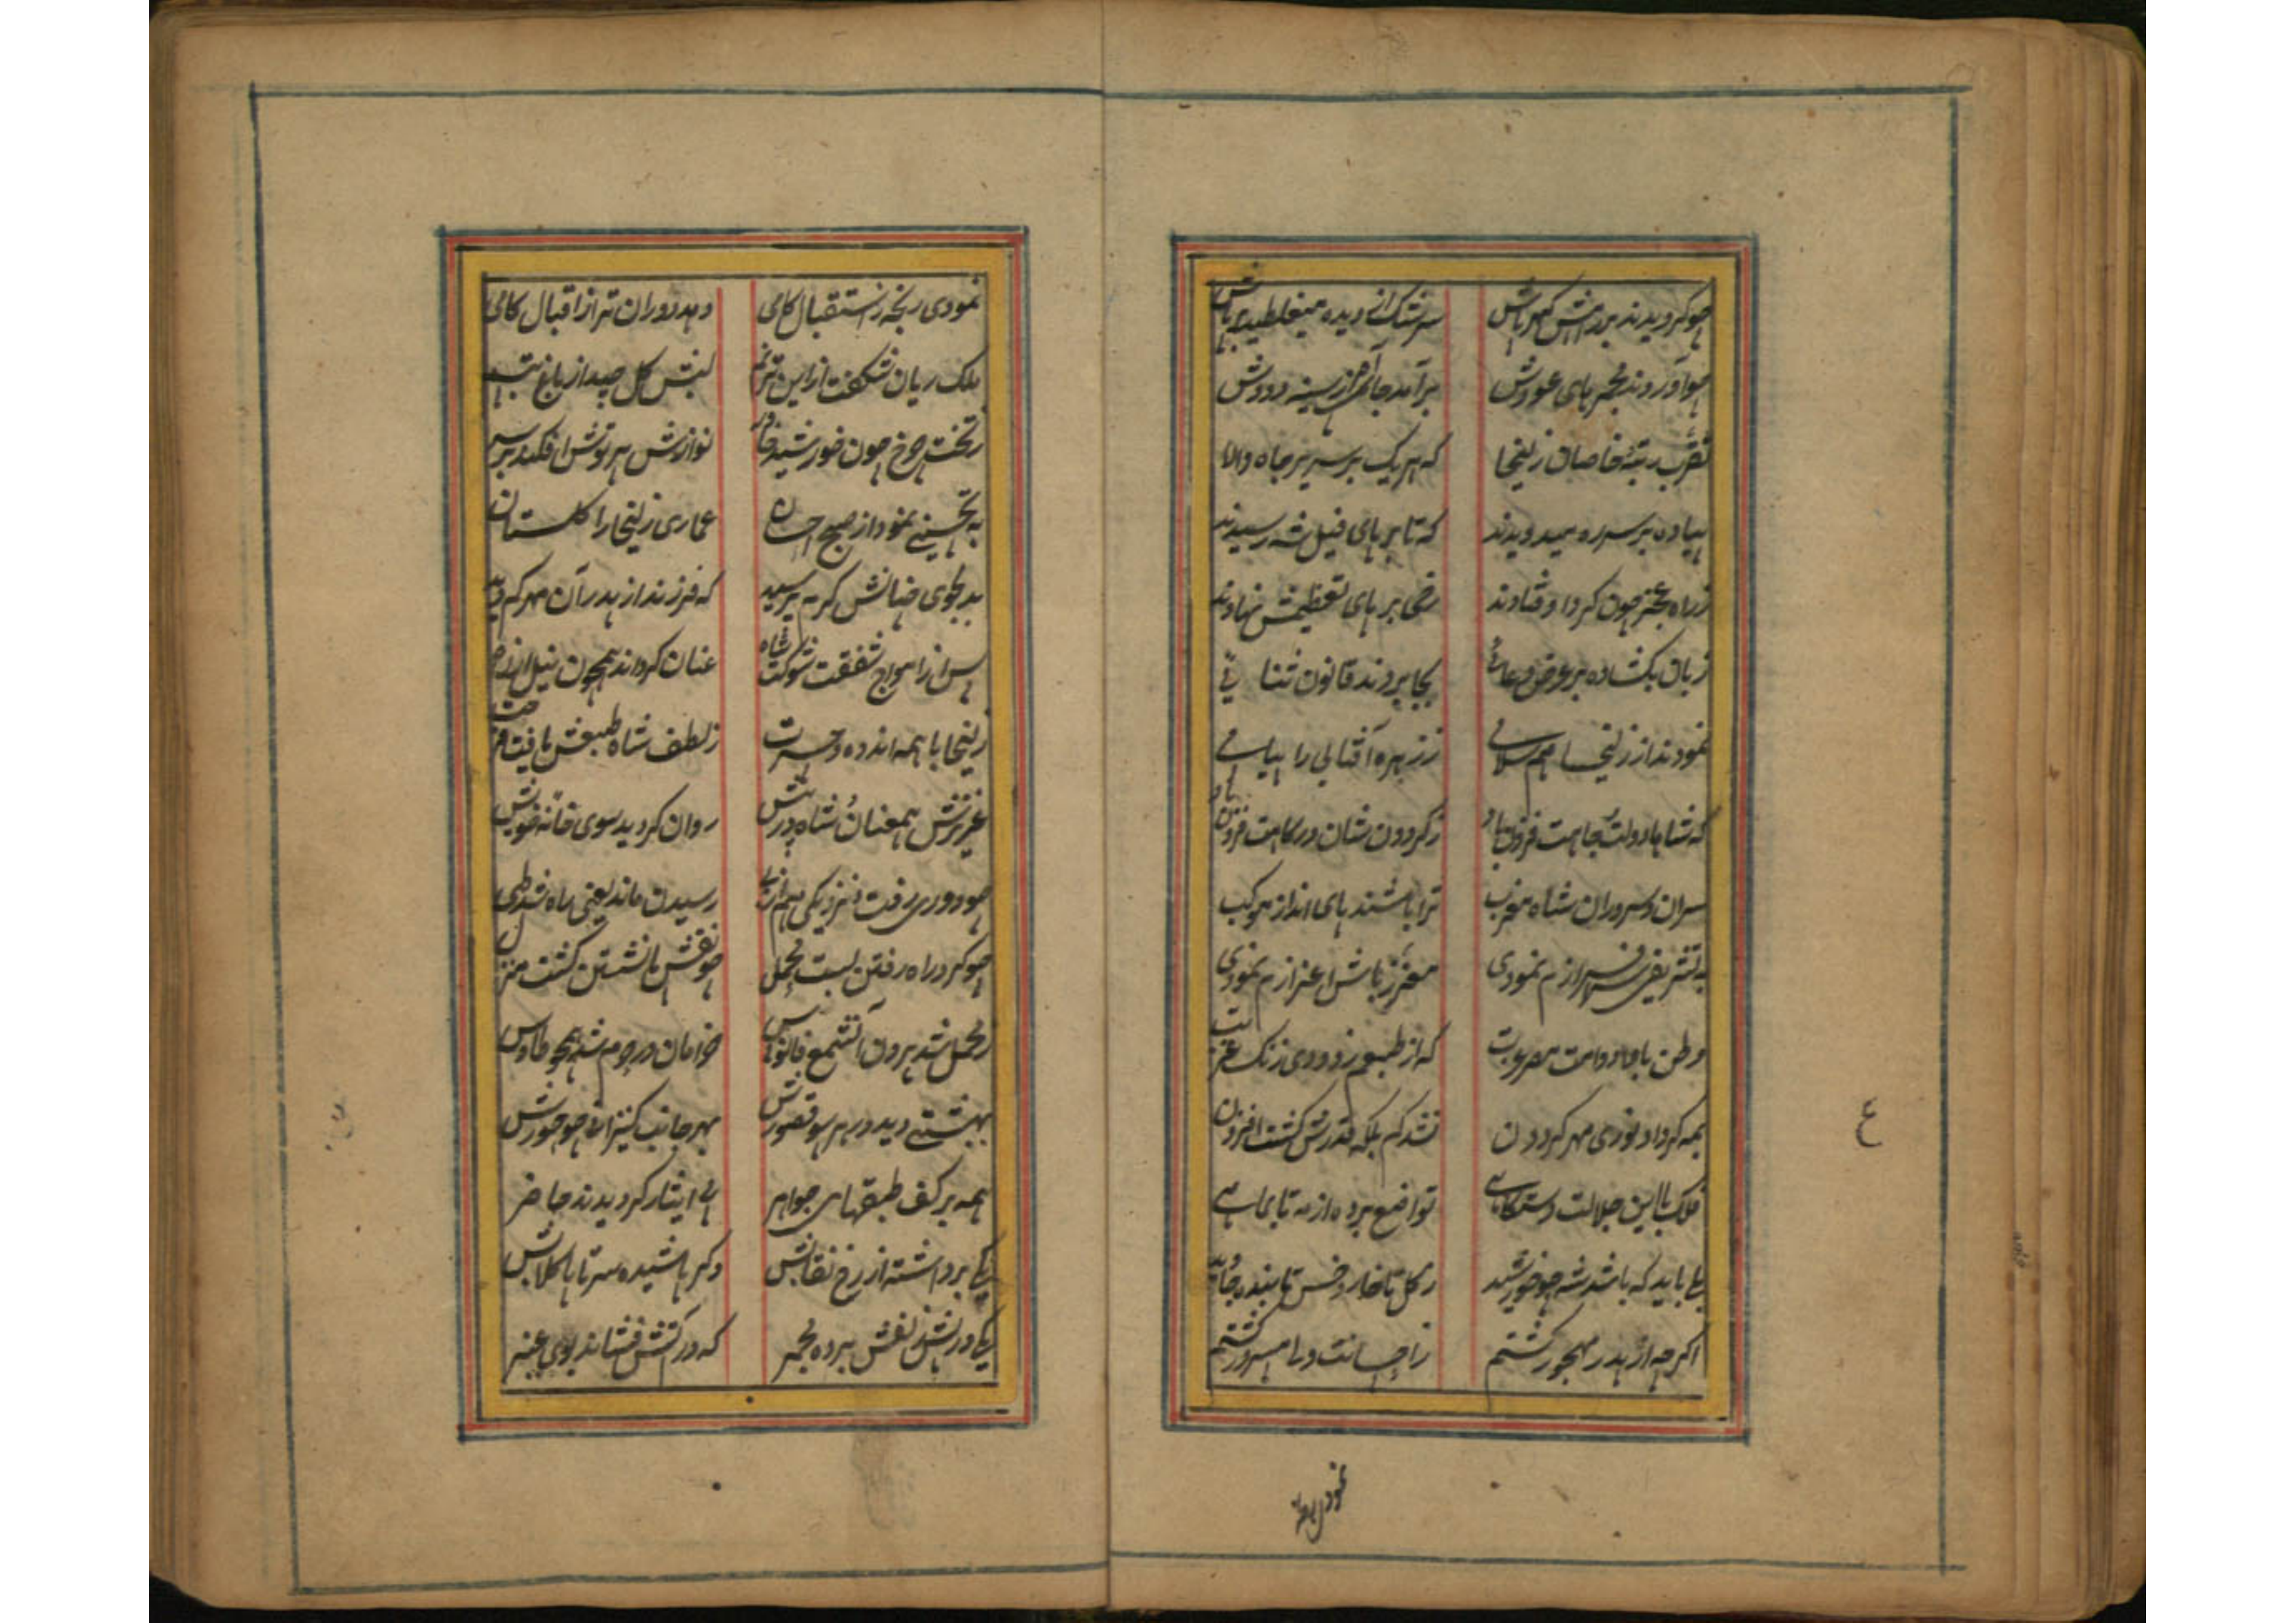 چو کردیدند بر راهش کهرپاش سرشک از دیده میغلطید برپاش
چو آوردند مجمرهای عودش برآمد جای آه از سینه دودش
تقرب رتبهٔ خاصان زلیخا که هر یک بر سریر جاه والا
پیاده بر سر ره میدویدند که تا بر پای فیل شه رسیدند
ز راه عجز چون کرد اوفتادند رخی بر پای تعظیمش نهادند
زبان بکشاده بر عرض دعائی بجا بردند قانون ثنائی
نمودند از زلیخا هم سلامی ز زهره آفتابی را پیامی
که شاها دولت جاهت فزون باد ز کردون نشان
سران و سروران شاه مغرب ترا باشند پای انداز موکب
به تشریفی سرافرازم نمودی معزز باش اعزازم نمودی
وطن باد که از طبعم زدودی زنک غربت
بمه کر داد نوری مهر کردون نشد کم بلکه قدرش کشت افزون
فلک با این جلالت دستکاهی تواضع برده از مه تا بماهی
بلی باید که باشد شه چو خورشید ز کل تا خار و خس تابنده جاوید
اکر چه از پدر مهجور کشتم ز احسانت ولی مسرور کشتم
نمودی رنجه
نمودی رنجه ز استقبال کامی دهد دوران ترا از اقبال کامی
ملک ریان شکفت از این ترنم لبش کل چید از باغ تبسم
ز تخت چرخ چون خورشید خاور نوازش پرتوش افکند بر سر
به تحسینی نمود از صبح احسان عماری زلیخا را کلستان
بدلجوی چنانش کرم پرسید که فرزند از پدر آن مهر کم دید
پس از امواج شفقت شوکت شاه عنان کرداند همچون نیل از راه
زلیخا با همه اندوه و حسرت ز لطف شاه طبعش یافت فرحت
عزیزش همعنان شاه در پیش روان کردید سوی خانه خویش
چو دوری رفت نزدیکی هم از پی رسیدن ماند یعنی راه شد طی
چو کرد راه رفتن بست محمل چو نقش پا نشستن کشت منزل
ز محمل شد برون آن شمع فانوس خرامان در حرم شد همچو طاوس
بهشتی دید در هر سو قصورش بهر جانب کنیزانی چو حورش
همه بر کف طبقهای جواهر پی ایثار کردیدند حاضر
یکی برداشته از رخ نقابش دکر پاشیده سر تا پا کلابش
یکی در پیش نفس برده مجمر که در کنش فشاند بوی عنبر